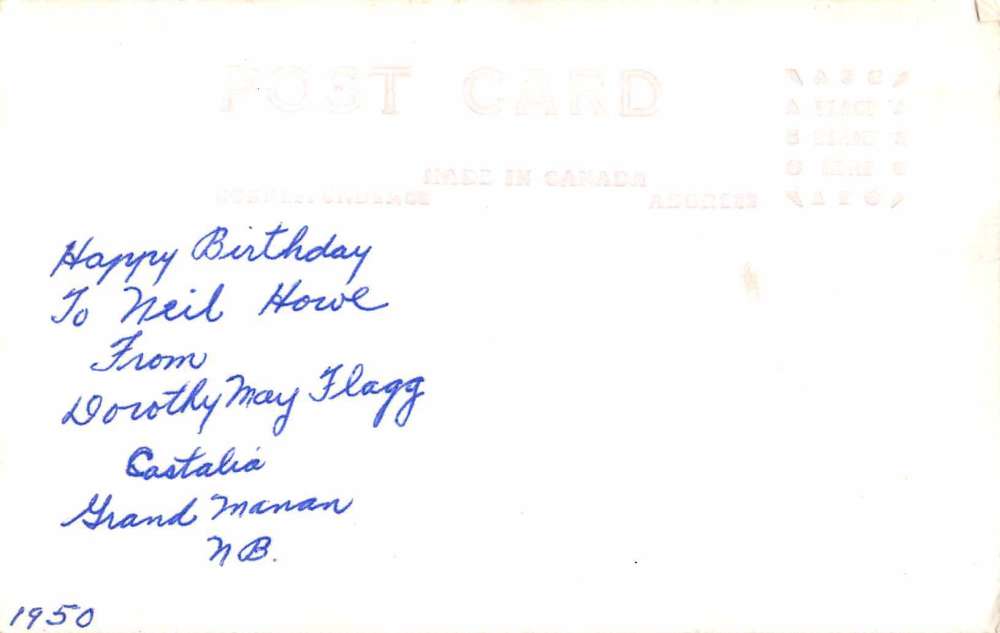 POST CARD
PLACE
STAMP
HERE
MADE IN CANADA
CORRESPONDENCE ADDRESS
Happy Birthday
To Neil Howe
From
Dorothy May Flagg
Castalia
Grand Manan
NB.
1950